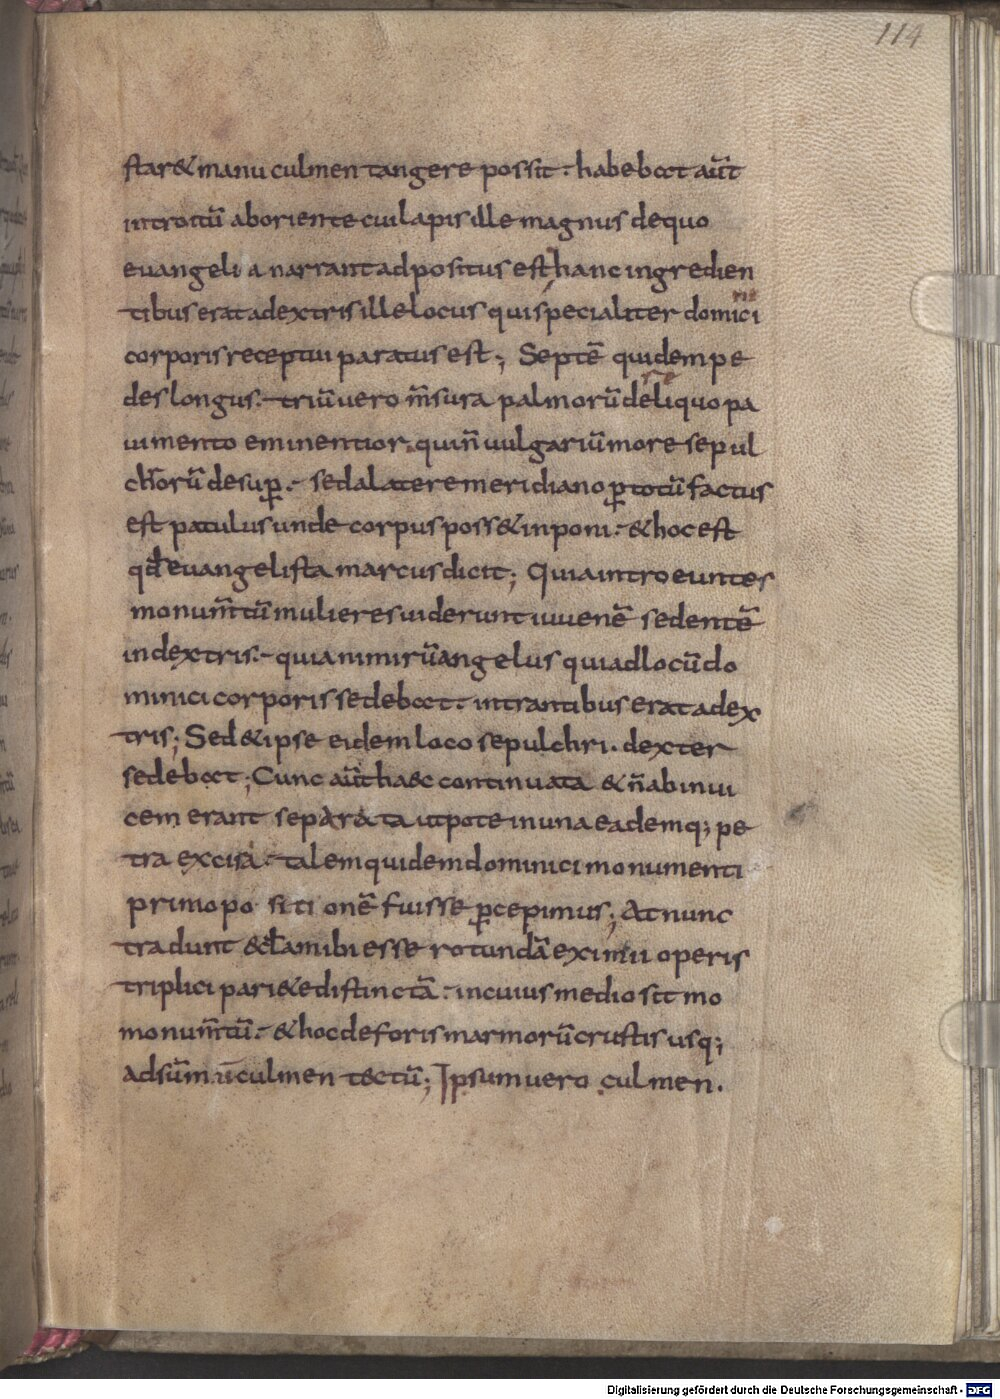 114
star& manu culmen tangere possit · habebat aut̄
introitū aboriente cui lapis ille magnus dequo
euangelia narrant adpositus est, hanc ingredien
tibus erat adextris ille locus qui specialiter dominici
corporis receptui paratus est; Septē quidem pe
des longus · triū uero m̄sura palmorū reliquo pa
uimento eminentior, qui n̄ uulgariū more sepul
chrorū desup̱ · sed alatere meridiano p̱ totū factus
est patulus unde corpus poss& inponi · & hoc est
qđ euangelista marcus dicit; Quia introeuntes
monum̄tū mulieres uiderunt iuuenē sedentē
indextris · quia nimirū angelus qui adlocū do
minici corporis sedebat · intrantibus erat adex
tris; Sed & ipse eidem loco sepulchri · dexter
sedebat; Cunc aut̄ haec continuata & n̄ abinui
cem erant separata utpote inuna eademq; pe
tra excisa · talem quidem dominici monumenti
primo positionē fuisse p̱cepimus; At nunc
tradunt & clam ibi esse rotundā eximii operis
triplici pari&e distinctā · incuius medio sit mo
monum̄tū · & hoc deforis marmorū crustis usq;
adsūmū culmen tectū; Ipsum uero culmen.
Digitalisierung gefördert durch die Deutsche Forschungsgemeinschaft - DFG